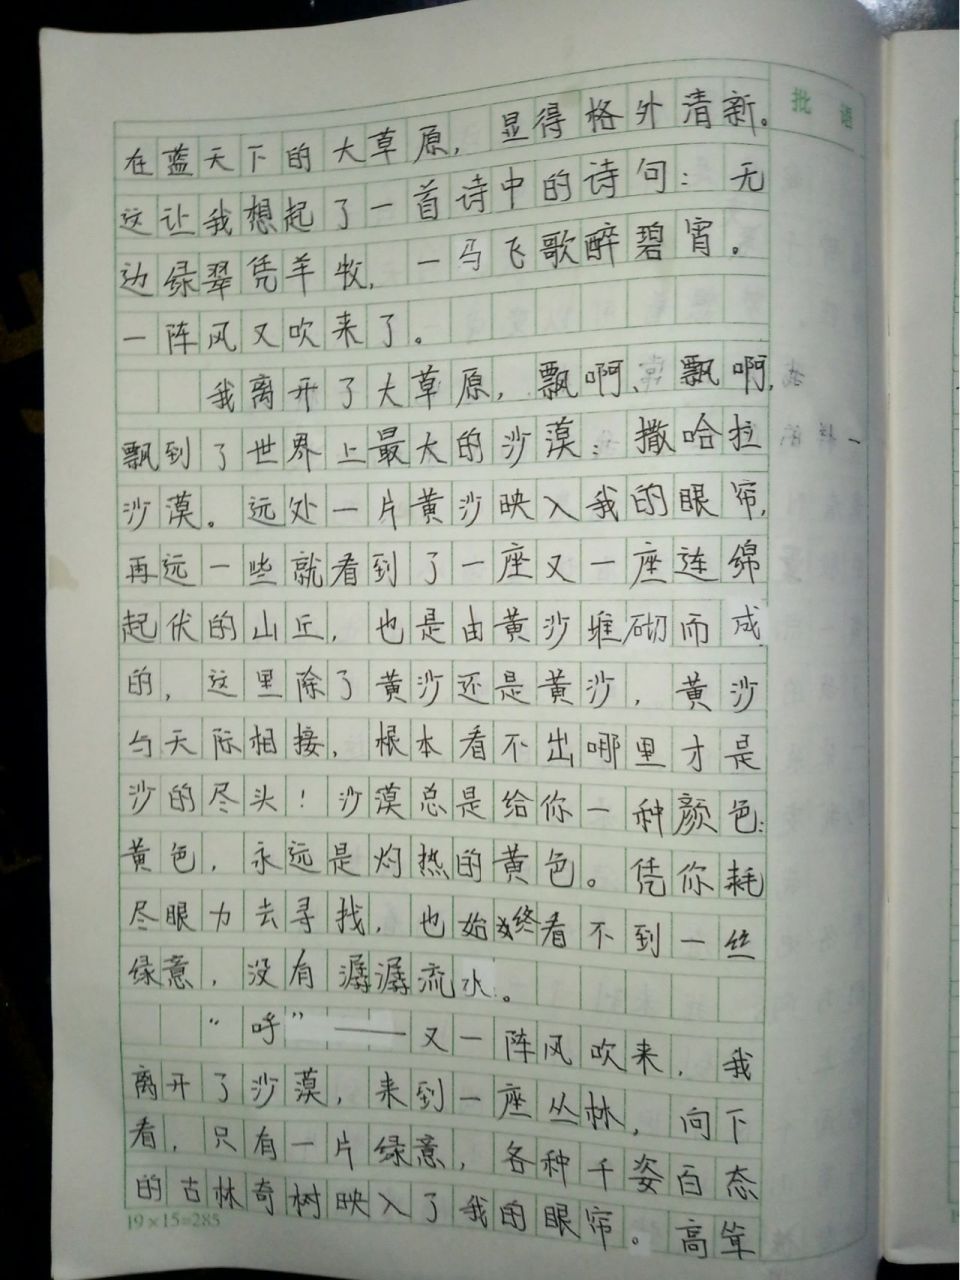 批 语
在蓝天下的大草原，显得格外清新。
这让我想起了一首诗中的诗句：无
边绿翠凭羊牧，一马飞歌醉碧宵。
一阵风又吹来了。
我离开了大草原，飘啊、飘啊，
飘到了世界上最大的沙漠：撒哈拉
沙漠。远处一片黄沙映入我的眼帘，
再远一些就看到了一座又一座连绵
起伏的山丘，也是由黄沙堆砌而成
的，这里除了黄沙还是黄沙，黄沙
与天际相接，根本看不出哪里才是
沙的尽头！沙漠总是给你一种颜色：
黄色，永远是灼热的黄色。凭你耗
尽眼力去寻找，也始终看不到一丝
绿意，没有潺潺流水。
“呼”——又一阵风吹来，我
离开了沙漠，来到一座丛林，向下
看，只有一片绿意，各种千姿百态
的古林奇树映入了我的眼帘。高耸
19×15=285